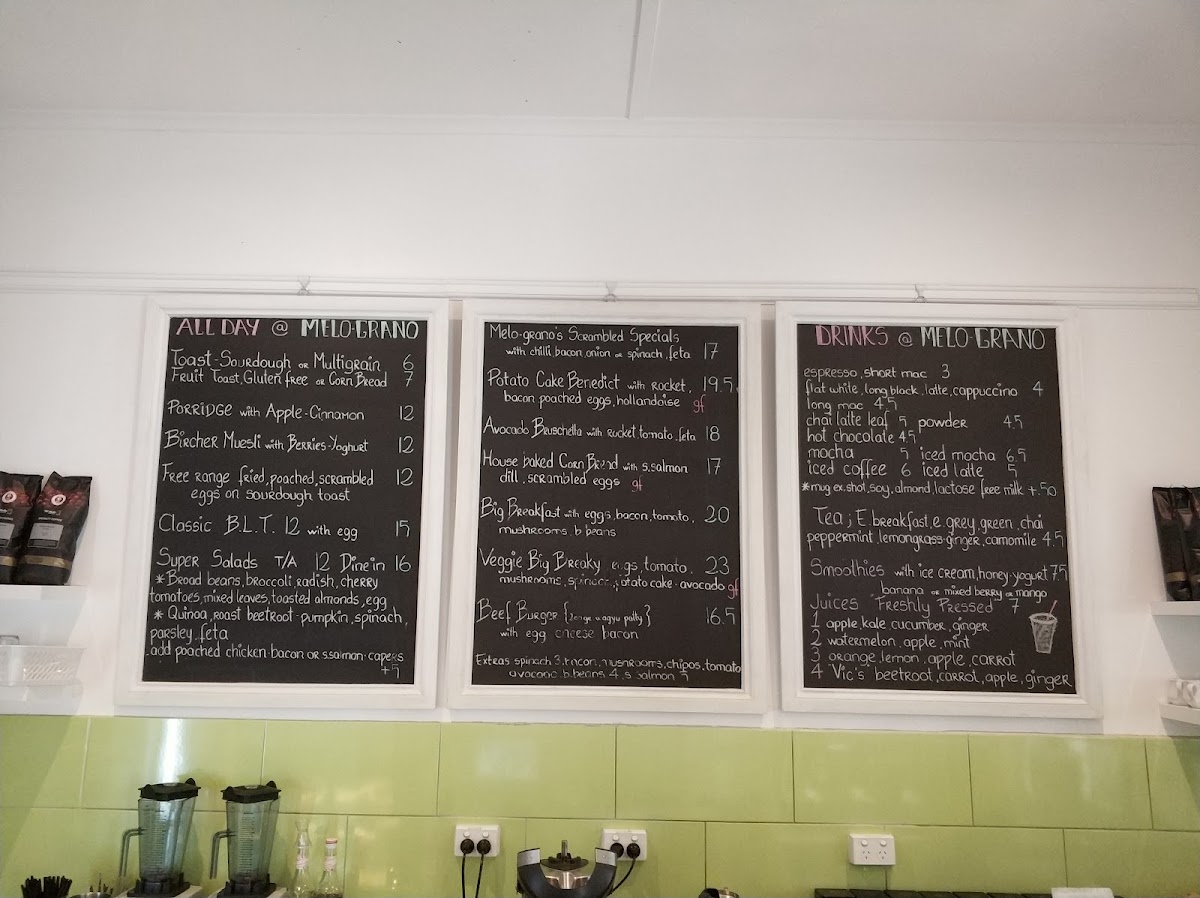 ALL DAY @ MELO-GRANO
Toast-Sourdough OR Multigrain 6
Fruit Toast, Gluten free OR Corn Bread 7
PORRIDGE with Apple-Cinnamon 12
Bircher Muesli with Berries-Yoghurt 12
Free range fried, poached, scrambled 12
eggs on sourdough toast
Classic B.L.T. 12 with egg 15
Super Salads T/A 12 Dine in 16
* Broad beans, broccoli, radish, cherry
tomatoes, mixed leaves, toasted almonds, egg
* Quinoa, roast beetroot-pumpkin, spinach,
parsley, feta
.add poached chicken-bacon OR s.salmon-capers
+5
Melo-grano's Scrambled Specials
with chilli, bacon, onion or spinach, feta 17
Potato Cake Benedict with Rocket, 19.5
bacon poached eggs, hollandaise gf
Avocado Bruschetta with rucket, tomato, feta 18
House baked Corn Bread with s.salmon 17
dill, scrambled eggs gf
Big Breakfast with eggs, bacon, tomato, 20
mushrooms, b.beans
Veggie Big Breaky eggs, tomato, 23
mushrooms, spinach, potato cake-avocado gf
Beef Burger {200gr wagyu patty} 16.5
with egg cheese bacon
Extras spinach 3, bacon, mushrooms, chipos, tomato
avocado, b.beans 4, s salmon 5
DRINKS @ MELO-GRANO
espresso, short mac 3
flat white, long black, latte, cappuccino 4
long mac 4.5
chai latte leaf 5 powder 4.5
hot chocolate 4.5
mocha 5 iced mocha 6.5
iced coffee 6 iced latte 5
*mug ex.shot, soy, almond, lactose free milk +.50
Tea; E. breakfast, e. grey, green, chai
peppermint, lemongrass-ginger, camomile 4.5
Smoothies with ice cream, honey-yogurt 7.5
banana or mixed berry or mango
Juices "Freshly Pressed" 7
1 apple, kale, cucumber, ginger
2 watermelon, apple, mint
3 orange, lemon, apple, carrot
4 Vic's beetroot, carrot, apple, ginger